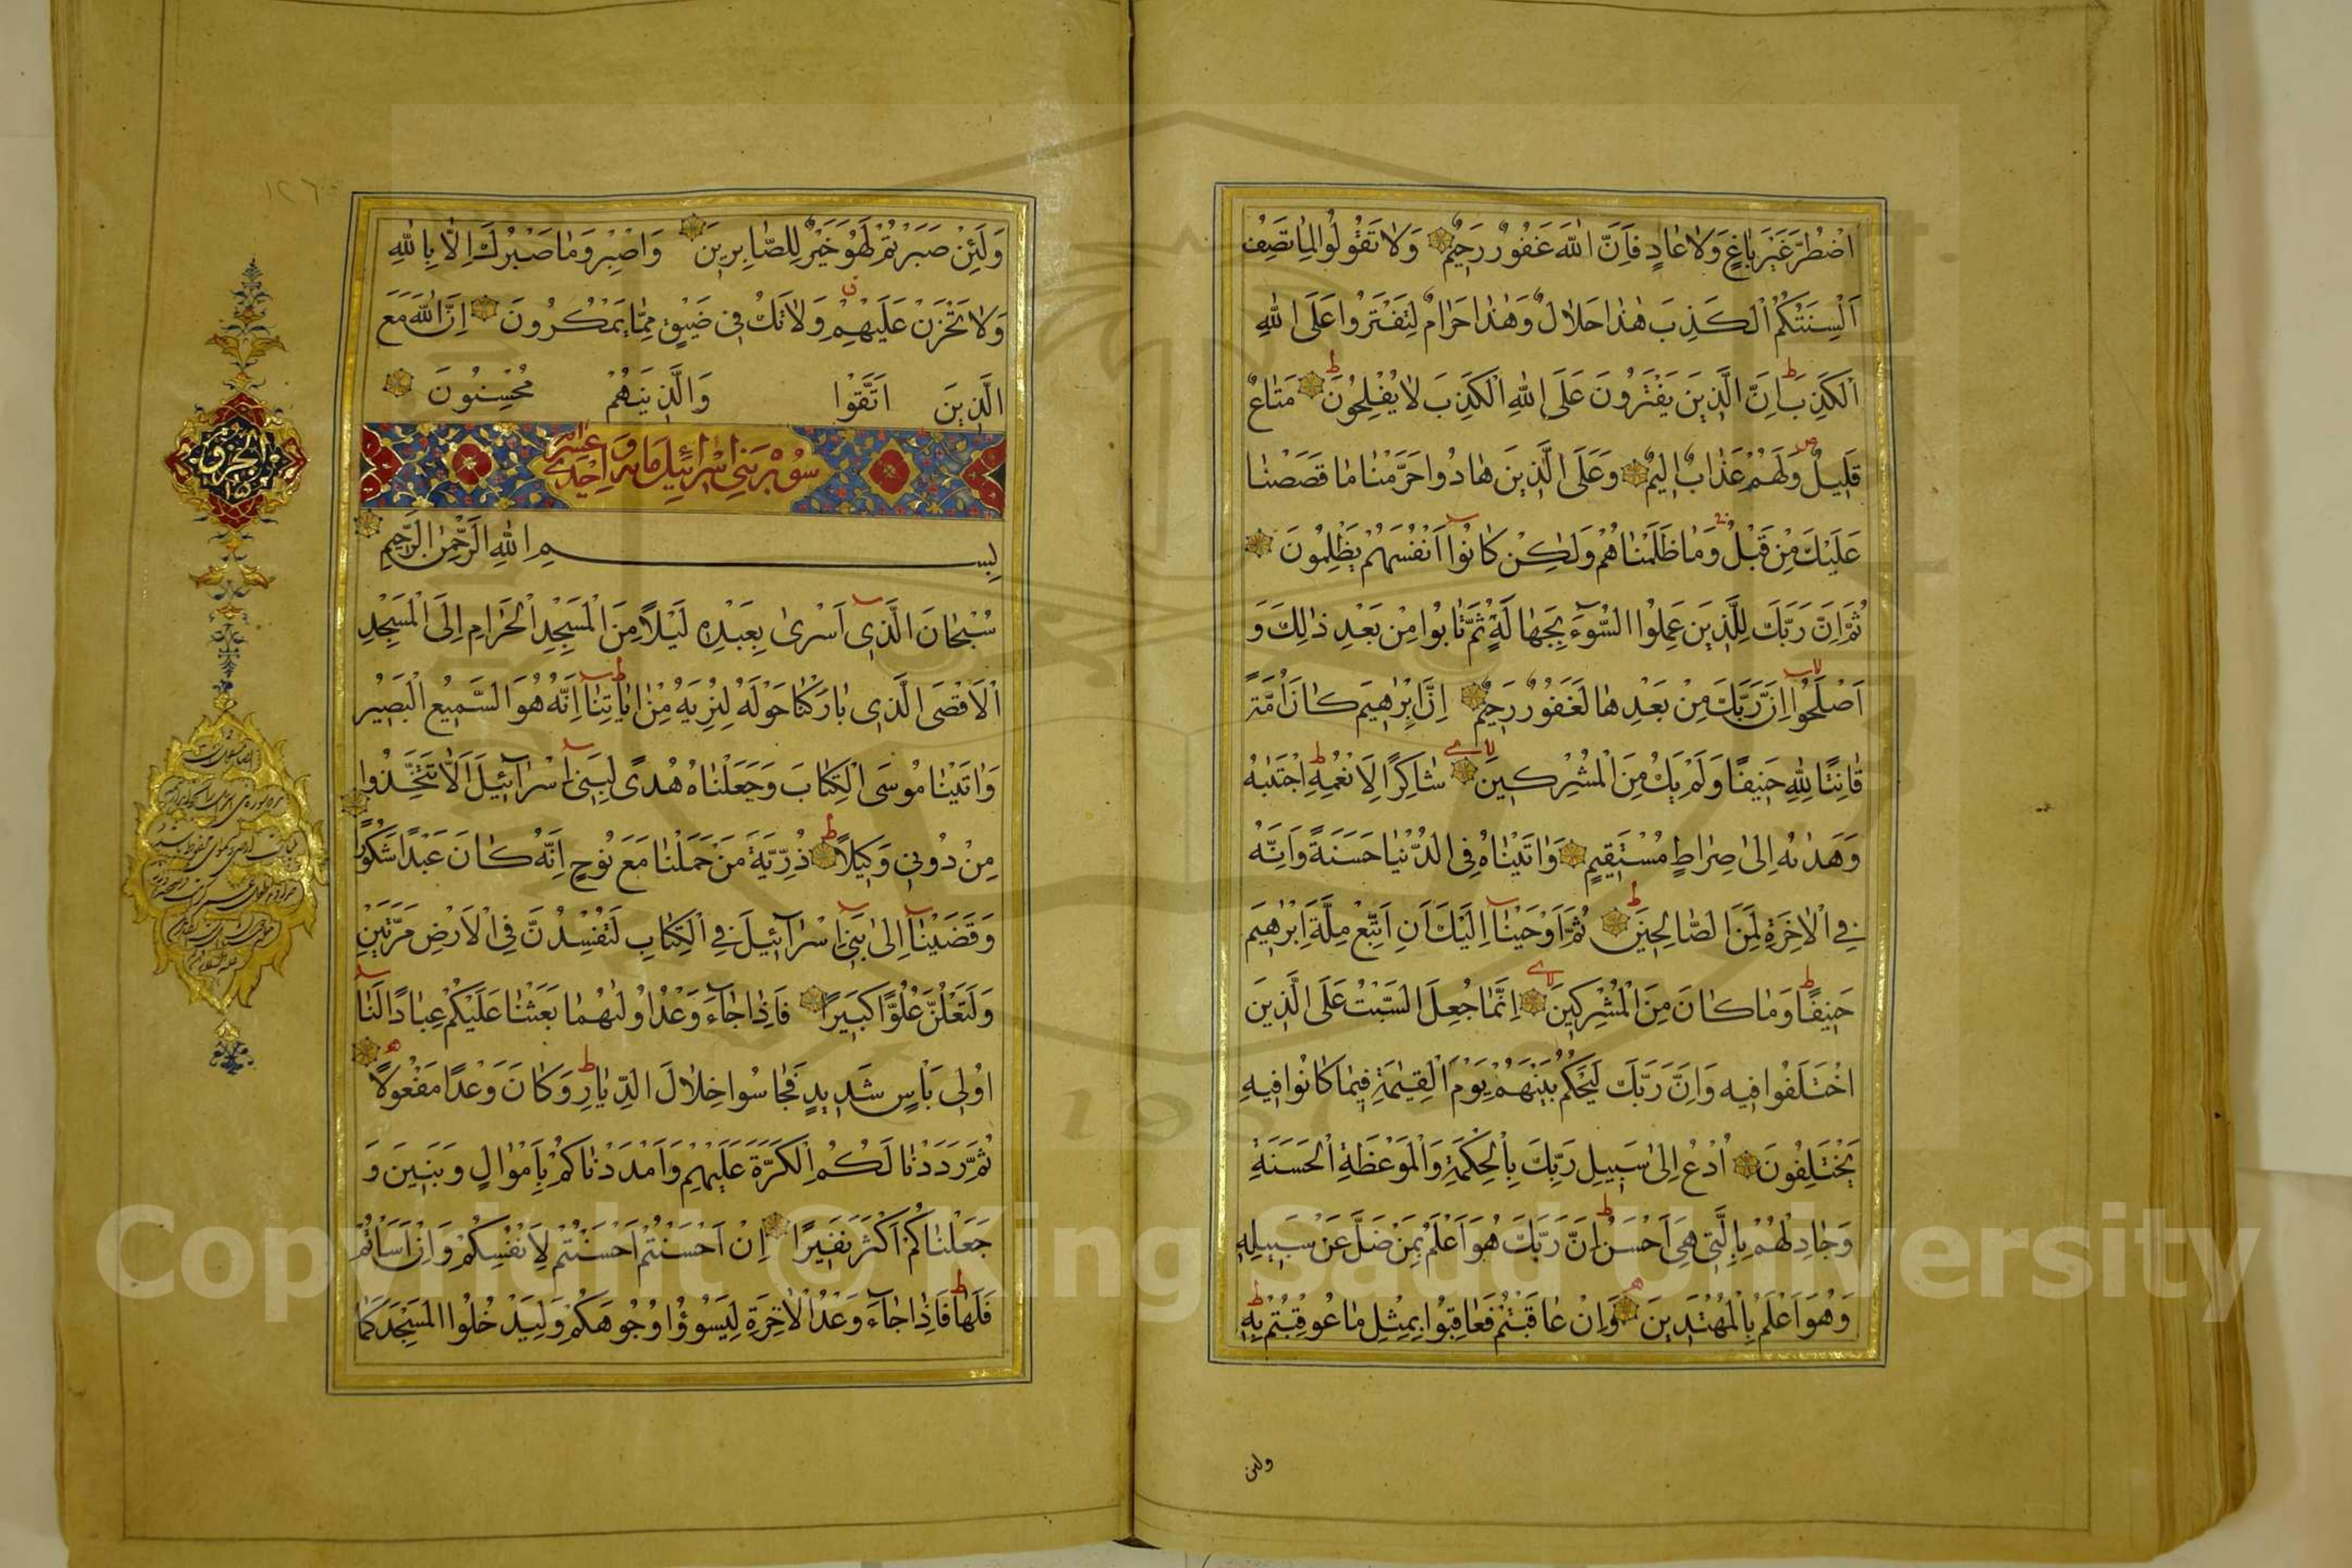 اضْطُرَّ غَيْرَ بٰاغٍ وَلٰا عٰادٍ فَاِنَّ اللّٰهَ غَفُورٌ رَحِيمٌ وَلٰا تَقُولُوا لِمٰا تَصِفُ
اَلْسِنَتُكُمُ الْكَذِبَ هٰذٰا حَلٰالٌ وَهٰذٰا حَرٰامٌ لِتَفْتَرُوا عَلَى اللّٰهِ
الْكَذِبَ اِنَّ الَّذِينَ يَفْتَرُونَ عَلَى اللّٰهِ الْكَذِبَ لٰا يُفْلِحُونَ مَتٰاعٌ
قَلِيلٌ وَلَهُمْ عَذٰابٌ اَلِيمٌ وَعَلَى الَّذِينَ هٰادُوا حَرَّمْنٰا مٰا قَصَصْنٰا
عَلَيْكَ مِنْ قَبْلُ وَمٰا ظَلَمْنٰاهُمْ وَلٰكِنْ كٰانُوٓا اَنْفُسَهُمْ يَظْلِمُونَ
ثُمَّ اِنَّ رَبَّكَ لِلَّذِينَ عَمِلُوا السُّوٓءَ بِجَهٰالَةٍ ثُمَّ تٰابُوا مِنْ بَعْدِ ذٰلِكَ وَ
اَصْلَحُوٓا اِنَّ رَبَّكَ مِنْ بَعْدِهٰا لَغَفُورٌ رَحِيمٌ اِنَّ اِبْرٰهِيمَ كٰانَ اُمَّةً
قٰانِتًا لِلّٰهِ حَنِيفًا وَلَمْ يَكُ مِنَ الْمُشْرِكِينَ شٰاكِرًا لِاَنْعُمِهِ اجْتَبٰهُ
وَهَدٰىهُ اِلىٰ صِرٰاطٍ مُسْتَقِيمٍ وَاٰتَيْنٰاهُ فِي الدُّنْيٰا حَسَنَةً وَاِنَّهُ
فِي الْاٰخِرَةِ لَمِنَ الصّٰالِحِينَ ثُمَّ اَوْحَيْنٰٓا اِلَيْكَ اَنِ اتَّبِعْ مِلَّةَ اِبْرٰهِيمَ
حَنِيفًا وَمٰا كٰانَ مِنَ الْمُشْرِكِينَ اِنَّمٰا جُعِلَ السَّبْتُ عَلَى الَّذِينَ
اخْتَلَفُوا فِيهِ وَاِنَّ رَبَّكَ لَيَحْكُمُ بَيْنَهُمْ يَوْمَ الْقِيٰمَةِ فِيمٰا كٰانُوا فِيهِ
يَخْتَلِفُونَ اُدْعُ اِلىٰ سَبِيلِ رَبِّكَ بِالْحِكْمَةِ وَالْمَوْعِظَةِ الْحَسَنَةِ
وَجٰادِلْهُمْ بِالَّتِي هِيَ اَحْسَنُ اِنَّ رَبَّكَ هُوَ اَعْلَمُ بِمَنْ ضَلَّ عَنْ سَبِيلِهِ
وَهُوَ اَعْلَمُ بِالْمُهْتَدِينَ وَاِنْ عٰاقَبْتُمْ فَعٰاقِبُوا بِمِثْلِ مٰا عُوقِبْتُمْ بِهِ
ولئن
١٢٦
وَلَئِنْ صَبَرْتُمْ لَهُوَ خَيْرٌ لِلصّٰابِرِينَ وَاصْبِرْ وَمٰا صَبْرُكَ اِلّٰا بِاللّٰهِ
وَلٰا تَحْزَنْ عَلَيْهِمْ وَلٰا تَكُ فِي ضَيْقٍ مِمّٰا يَمْكُرُونَ اِنَّ اللّٰهَ مَعَ
الَّذِينَ اتَّقَوْا وَالَّذِينَ هُمْ مُحْسِنُونَ
سورة بني اسرائيل مائة و احدى عشر
بِسْمِ اللّٰهِ الرَّحْمٰنِ الرَّحِيمِ
سُبْحٰانَ الَّذِيٓ اَسْرىٰ بِعَبْدِهِ لَيْلًا مِنَ الْمَسْجِدِ الْحَرٰامِ اِلَى الْمَسْجِدِ
الْاَقْصَى الَّذِي بٰارَكْنٰا حَوْلَهُ لِنُرِيَهُ مِنْ اٰيٰاتِنٰٓا اِنَّهُ هُوَ السَّمِيعُ الْبَصِيرُ
وَاٰتَيْنٰا مُوسَى الْكِتٰابَ وَجَعَلْنٰاهُ هُدًى لِبَنِيٓ اِسْرٰٓائِيلَ اَلّٰا تَتَّخِذُوا
مِنْ دُونِي وَكِيلًا ذُرِّيَّةَ مَنْ حَمَلْنٰا مَعَ نُوحٍ اِنَّهُ كٰانَ عَبْدًا شَكُورًا
وَقَضَيْنٰٓا اِلىٰ بَنِيٓ اِسْرٰٓائِيلَ فِي الْكِتٰابِ لَتُفْسِدُنَّ فِي الْاَرْضِ مَرَّتَيْنِ
وَلَتَعْلُنَّ عُلُوًّا كَبِيرًا فَاِذٰا جٰٓاءَ وَعْدُ اُولٰىهُمٰا بَعَثْنٰا عَلَيْكُمْ عِبٰادًا لَنٰٓا
اُولِي بَاْسٍ شَدِيدٍ فَجٰاسُوا خِلٰالَ الدِّيٰارِ وَكٰانَ وَعْدًا مَفْعُولًا
ثُمَّ رَدَدْنٰا لَكُمُ الْكَرَّةَ عَلَيْهِمْ وَاَمْدَدْنٰاكُمْ بِاَمْوٰالٍ وَبَنِينَ وَ
جَعَلْنٰاكُمْ اَكْثَرَ نَفِيرًا اِنْ اَحْسَنْتُمْ اَحْسَنْتُمْ لِاَنْفُسِكُمْ وَاِنْ اَسَاْتُمْ
فَلَهٰا فَاِذٰا جٰٓاءَ وَعْدُ الْاٰخِرَةِ لِيَسُوؤُا وُجُوهَكُمْ وَلِيَدْخُلُوا الْمَسْجِدَ كَمٰا
الجزو
١٥
Copyright © King Saud University